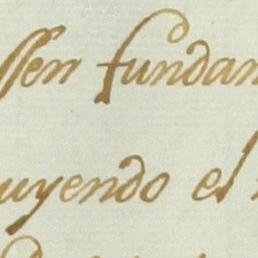 ssen fundan
uyendo el